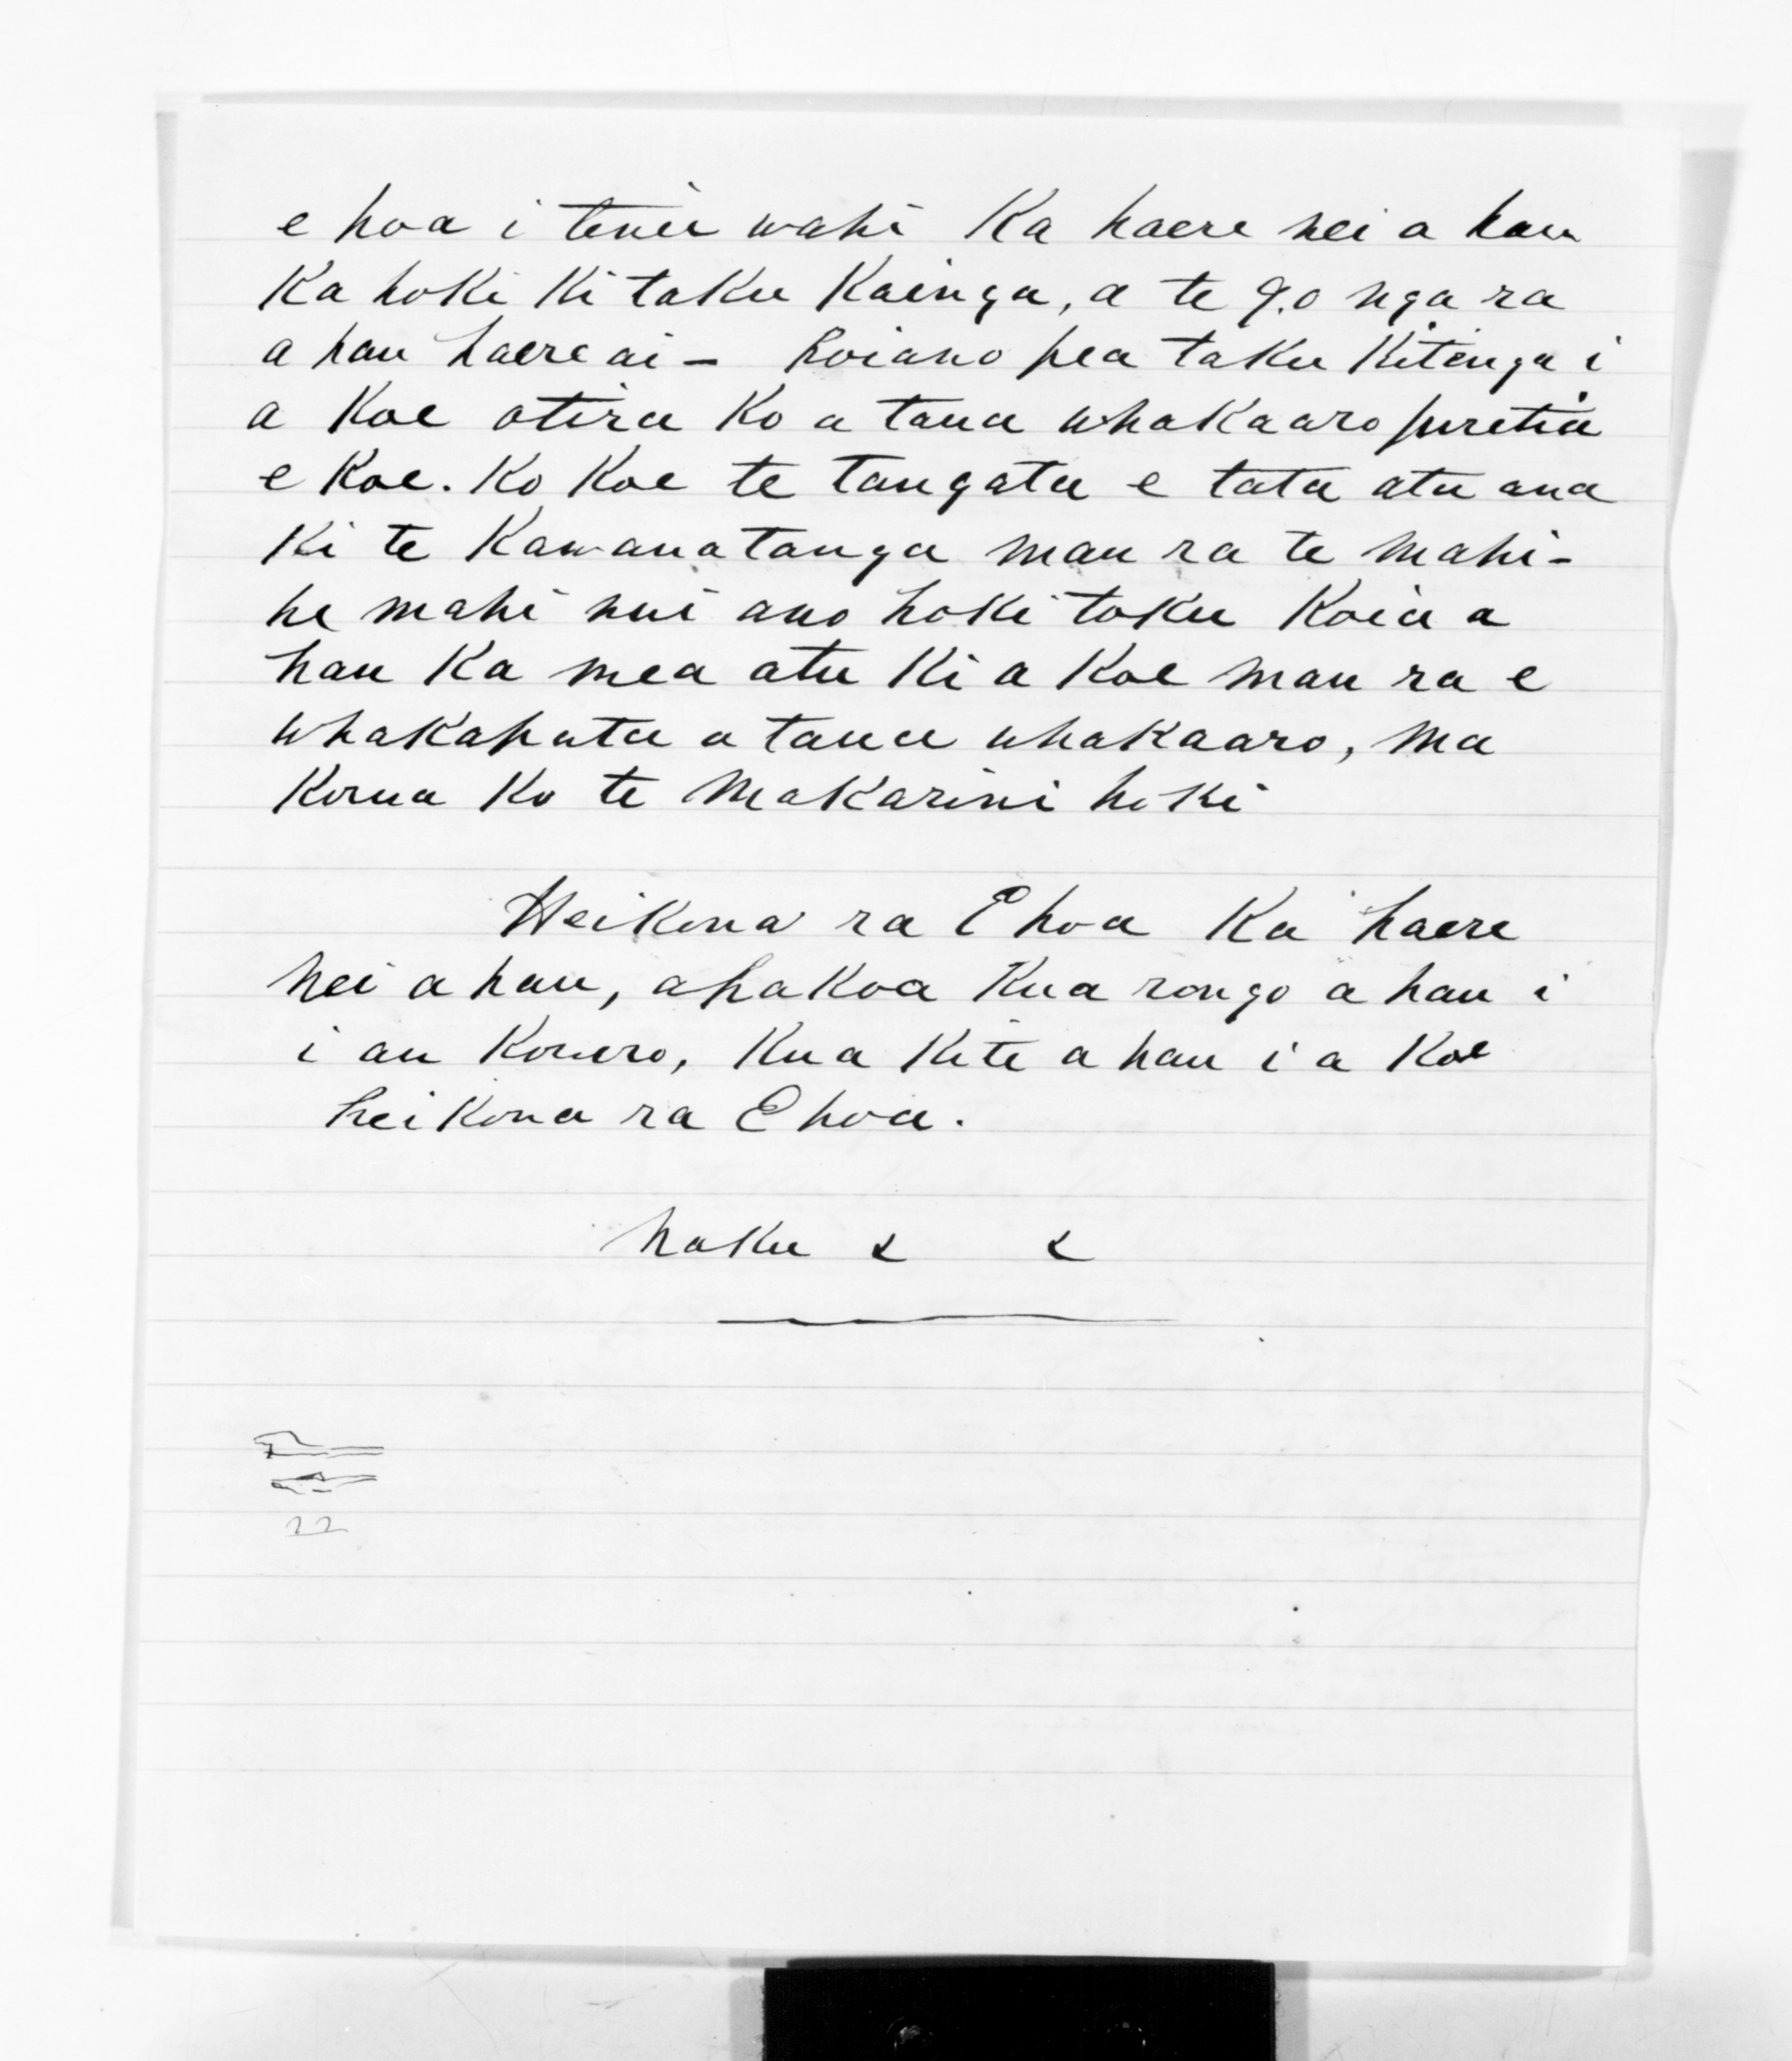 e hoa i tenei wahi Ka haere nei a hau
Ka hoki Ki taku Kainga, a te 9.0 nga ra
a hau haere ai – hoiano pea taku Kitenga i
a Koe otira Ko a taua whakaaro puretia
e Koe. Ko Koe te tangata e tata atu ana
Ki te Kawanatanga mau ra te mahi –
he mahi nui ano hoki toku Koia a
hau Ka mea atu Ki a Koe mau ra e
whakaputa a taua whakaaro, ma
Korua Ko te Makarini hoki
Heikona ra E hoa Ka haere
nei a hau, ahakoa Kua rongo a hau i
i au Korero, Kua Kite a hau i a Koe
heikona ra E hoa.
naku
22